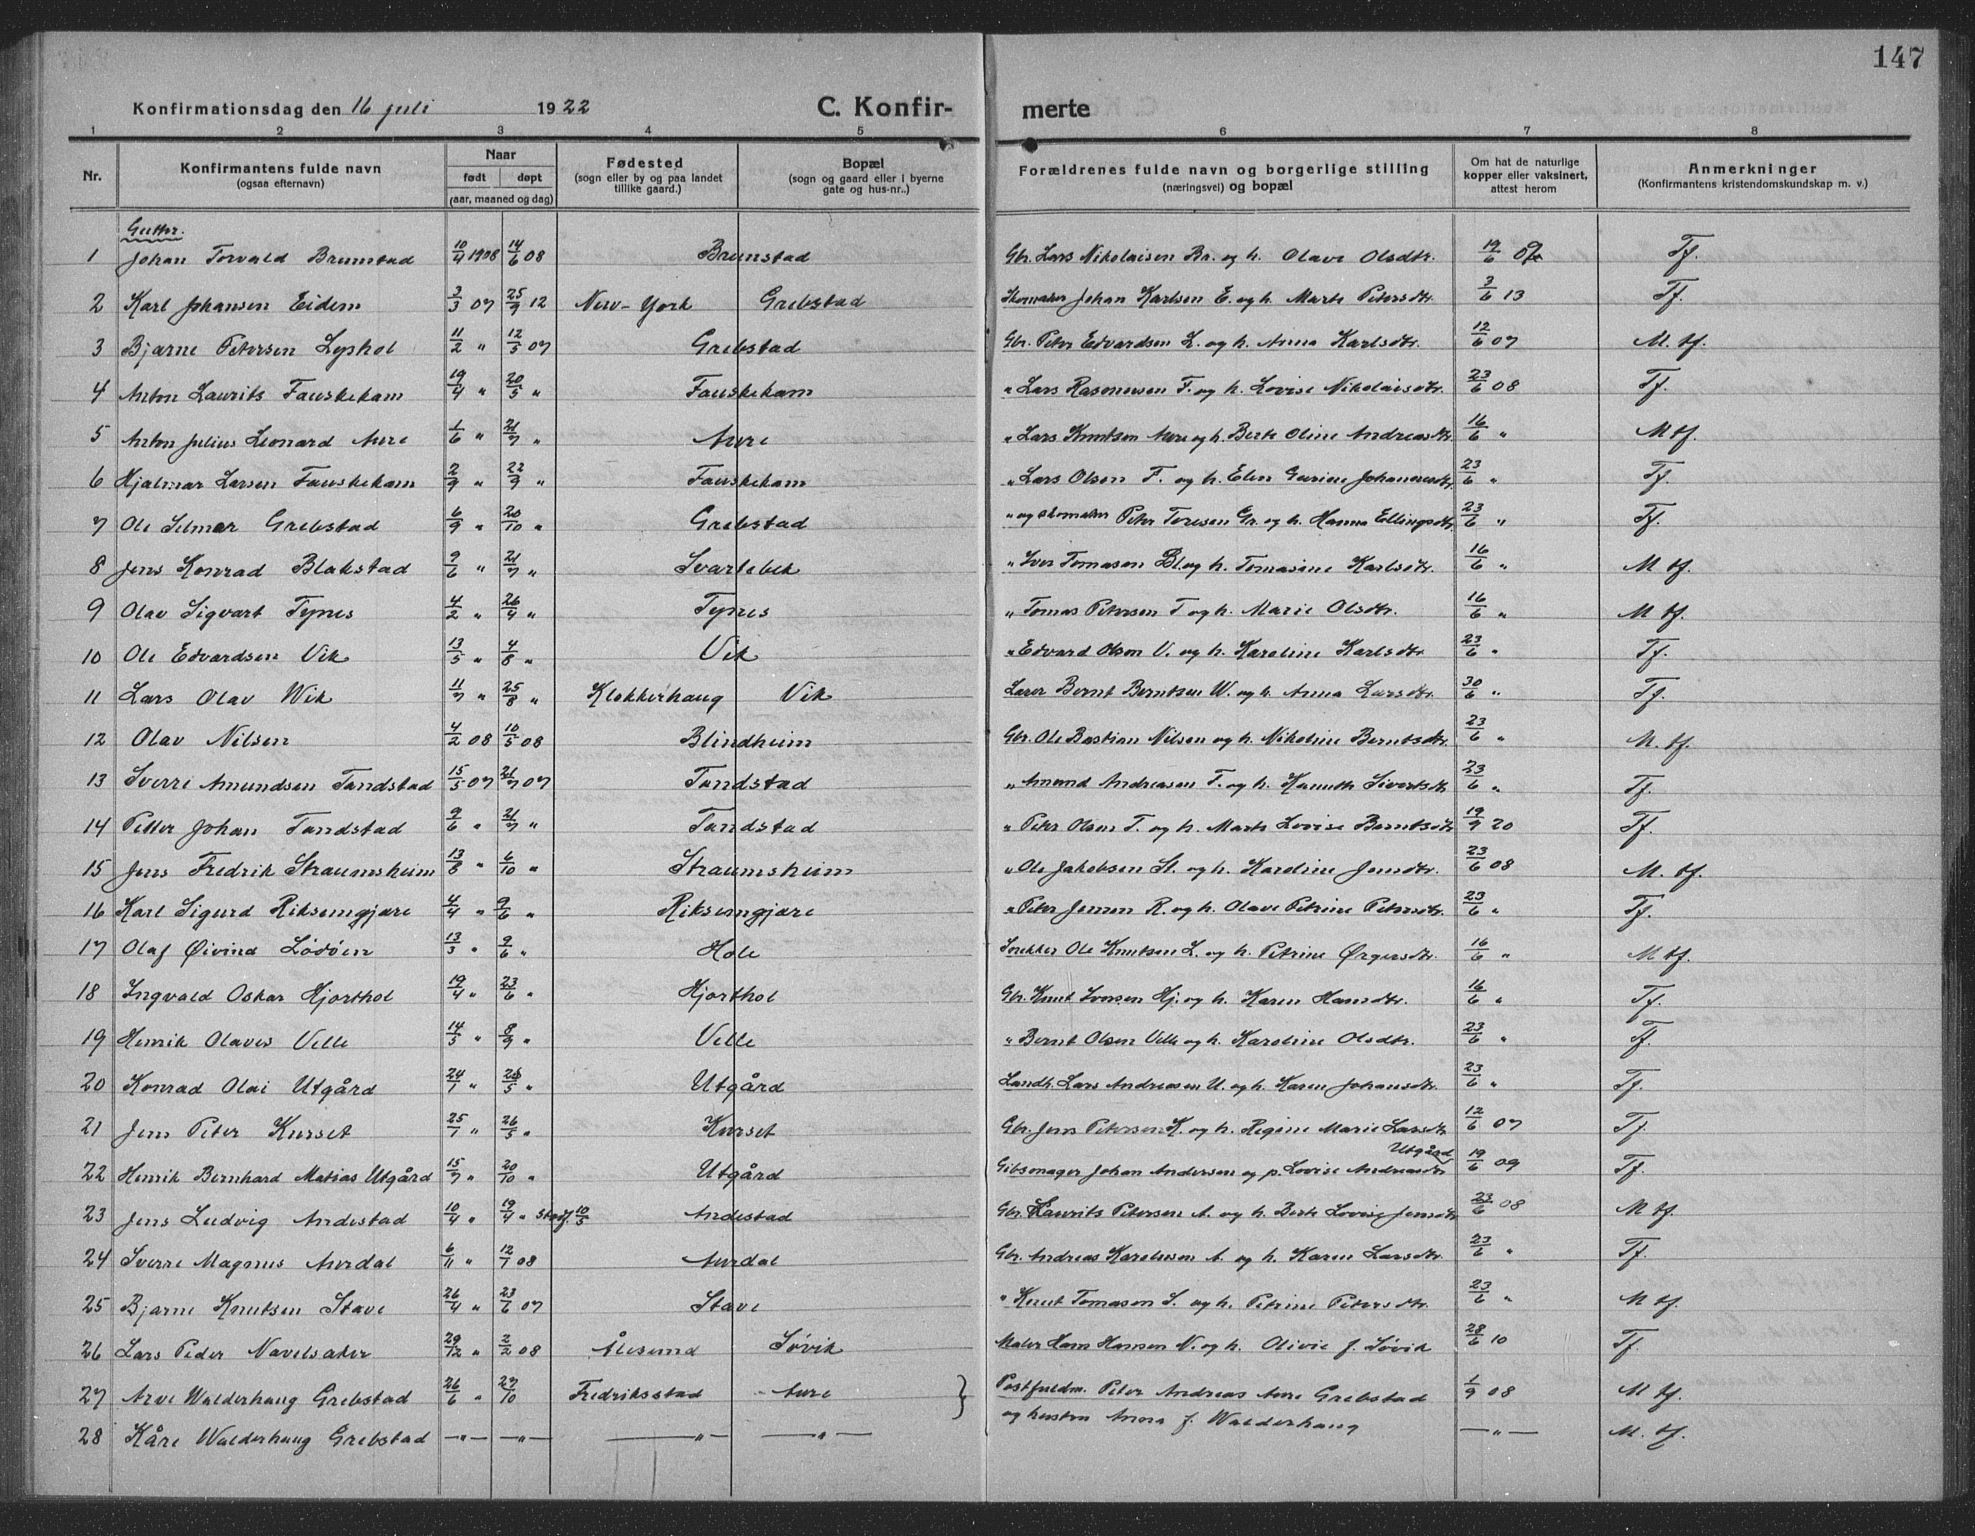 147
Konfirmationsdag den 16 juli 1922 C. Konfir- merte
1 2 3 4 5 6 7 8
Nr. Konfirmantens fulde navn (ogsaa efternavn) Naar født døpt (aar, maaned og dag) Fødested (sogn eller by og paa landet tillike gaard.) Bopæl (sogn og gaard eller i byerne gate og hus-nr.) Forældrenes fulde navn og borgerlige stilling (næringsvei) og bopæl Om hat de naturlige kopper eller vaksinert, attest herom Anmerkninger (Konfirmantens kristendomskundskap m. v.)
Gutter.
1 Johan Torvald Brunstad 10/4 1908 14/6 08 Brunstad Gbr. Lars Nikolaisen Br. og h. Olave Olsdtr. 19/6 Tf.
2 Karl Johansen Eidem 3/3 07 25/9 12 New-York Grebstad Skomaker Johan Karlsen E. og h. Marte Petersdtr. 3/6 13 Tf.
3 Bjarne Petersen Lyshol 11/2 " 12/5 07 Grebstad Gbr. Peter Edvardsen L. og h. Anna Karlsdtr. 12/6 07 M. tf.
4 Anton Laurits Fauskekam 19/4 " 20/5 " Fauskekam " Lars Rasmussen F. og h. Lovise Nikolaisdtr. 23/6 08 Tf.
5 Anton Julius Leonard Aure 1/6 " 21/7 " Aure " Lars Knutsen Aure og h. Berte Oline Andreasdtr. 16/6 " M tf.
6 Hjalmar Larsen Fauskekam 2/9 " 22/9 " Fauskekam " Lars Olsen F. og h. Elen Gurine Johannesdtr. 23/6 " Tf.
7 Ole Selmer Grebstad 6/9 " 20/10 " Grebstad " og skomaker Peter Toresen Gr. og h. Hanna Ellingsdtr. 23/6 " Tf.
8 Jens Konrad Blakstad 9/6 " 21/7 " Svartebek " Iver Tomasen Bl. og h. Tomasine Karlsdtr. 16/6 " M tf.
9 Olav Sigvart Tynes 4/2 " 26/4 " Tynes " Tomas Petersen T og h. Marie Olsdtr. 16/6 " M tf.
10 Ole Edvardsen Vik 13/5 " 4/8 " Vik " Edvard Olsen V. og h. Karoline Karlsdtr. 23/6 " Tf.
11 Lars Olav Wik 11/7 " 25/8 " Klokkerhaug Vik Lærer Bernt Berntsen W. og h. Anna Larsdtr. 30/6 " Tf.
12 Olav Nilsen 4/2 08 10/5 08 Blindheim Gbr. Ole Bastian Nilsen og h. Nikoline Berntsdtr. 23/6 " M. tf.
13 Sverre Amundsen Tandstad 15/5 07 21/7 07 Tandstad " Amund Andreasen T. og h. Sivertsdtr. 23/6 " Tf.
14 Petter Johan Tandstad 9/6 " 21/7 " Tandstad " Peter Olsen T. og h. Marte Lovise Berntsdtr. 19/9 20 Tf.
15 Jens Fredrik Straumsheim 13/8 " 6/10 " Straumsheim " Ole Jakobsen St. og h. Karoline Jensdtr. 23/6 08 M. tf.
16 Karl Sigurd Riksemgjære 4/4 " 9/6 " Riksemgjære " Peter Jensen R. og h. Olave Petrine Petersdtr. 23/6 " Tf.
17 Olaf Øivind Lødøen 13/3 " 9/6 " Hole Snekker Ole Knutsen L. og h. Petrine Ørgersdtr. 16/6 " M tf.
18 Ingvald Oskar Hjorthol 19/4 " 23/6 " Hjorthol Gbr. Knut Iversen Hj. og h. Karen Hansdtr. 16/6 " Tf.
19 Henrik Olaves Velle 14/5 " 8/9 " Velle " Bernt Olsen Velle og h. Karoline Olsdtr. 23/6 " Tf.
20 Konrad Olai Utgård 24/1 " 26/5 " Utgård Landh. Lars Andreasen U. og h. Karen Johansdtr. 23/6 " Tf.
21 Jens Peter Kurset 25/1 " 26/5 " Kurset Gbr. Jens Petersen K. og h. Regine Marie Larsdtr 12/6 07 Tf.
22 Henrik Bernhard Matias Utgård 15/7 " 20/10 " Utgård Gibsmager Johan Andersen og p. Lovise Andreasdtr Utgård 19/6 09 Tf.
23 Jens Ludvig Andestad 10/4 " 19/4 " stadf. 10/5 Andestad Gbr. Laurits Petersen A. og h. Berte Lovise Jensdtr 23/6 08 M tf.
24 Sverre Magnus Aurdal 6/11 " 12/7 08 Aurdal Gbr. Andreas Karolusen A. og h. Karen Larsdtr. 23/6 " Tf.
25 Bjarne Knutsen Stave 26/4 " 23/6 07 Stave " Knut Tomasen S. og h. Petrine Petersdtr. 23/6 " M tf.
26 Lars Peder Navelsaker 29/12 " 2/2 08 Ålesund Søvik Maler Hans Hansen N. og h. Olivie f. Søvik 28/6 10 Tf.
27 Arve Walderhaug Grebstad 26/6 " 27/10 Fredriksstad Aure } Postfuldm. Peter Andreas Aure Grebstad 1/9 08 M tf.
og hustru Anna f. Walderhaug
28 Kåre Walderhaug Grebstad —"— —"— —"— —"— —"— M. tf.